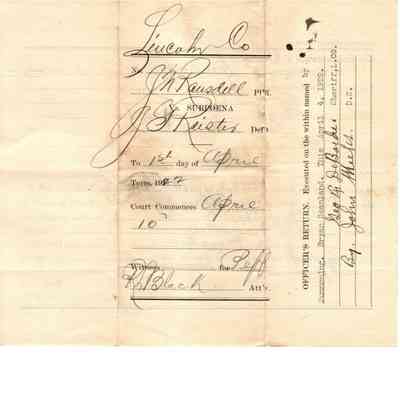 Lincoln Co
J N Ransdell Pl'ff.
SUBPOENA
J F Reister Def't
To 1st day of April
Term, 1922
Court Commences April
10
Witness for Peff
Black Att'y.
OFFICER'S RETURN. Executed on the within named by
Summoning, Bryan Deanland. This April 4, 1922.
Geo B. DeBorde Sheriff, L.CO.
By. John Meeks. D.S.